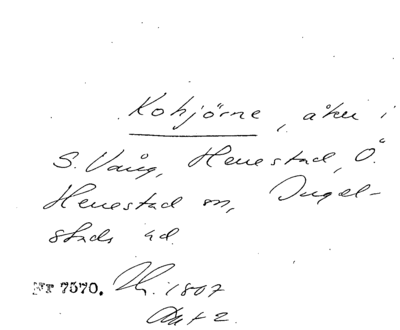 Kohjörne, åker i
S. Vång, Herrestad, Ö.
Herrestad sn, Ingel-
stads hd.
Nr 7570. 1807
Akt 2.